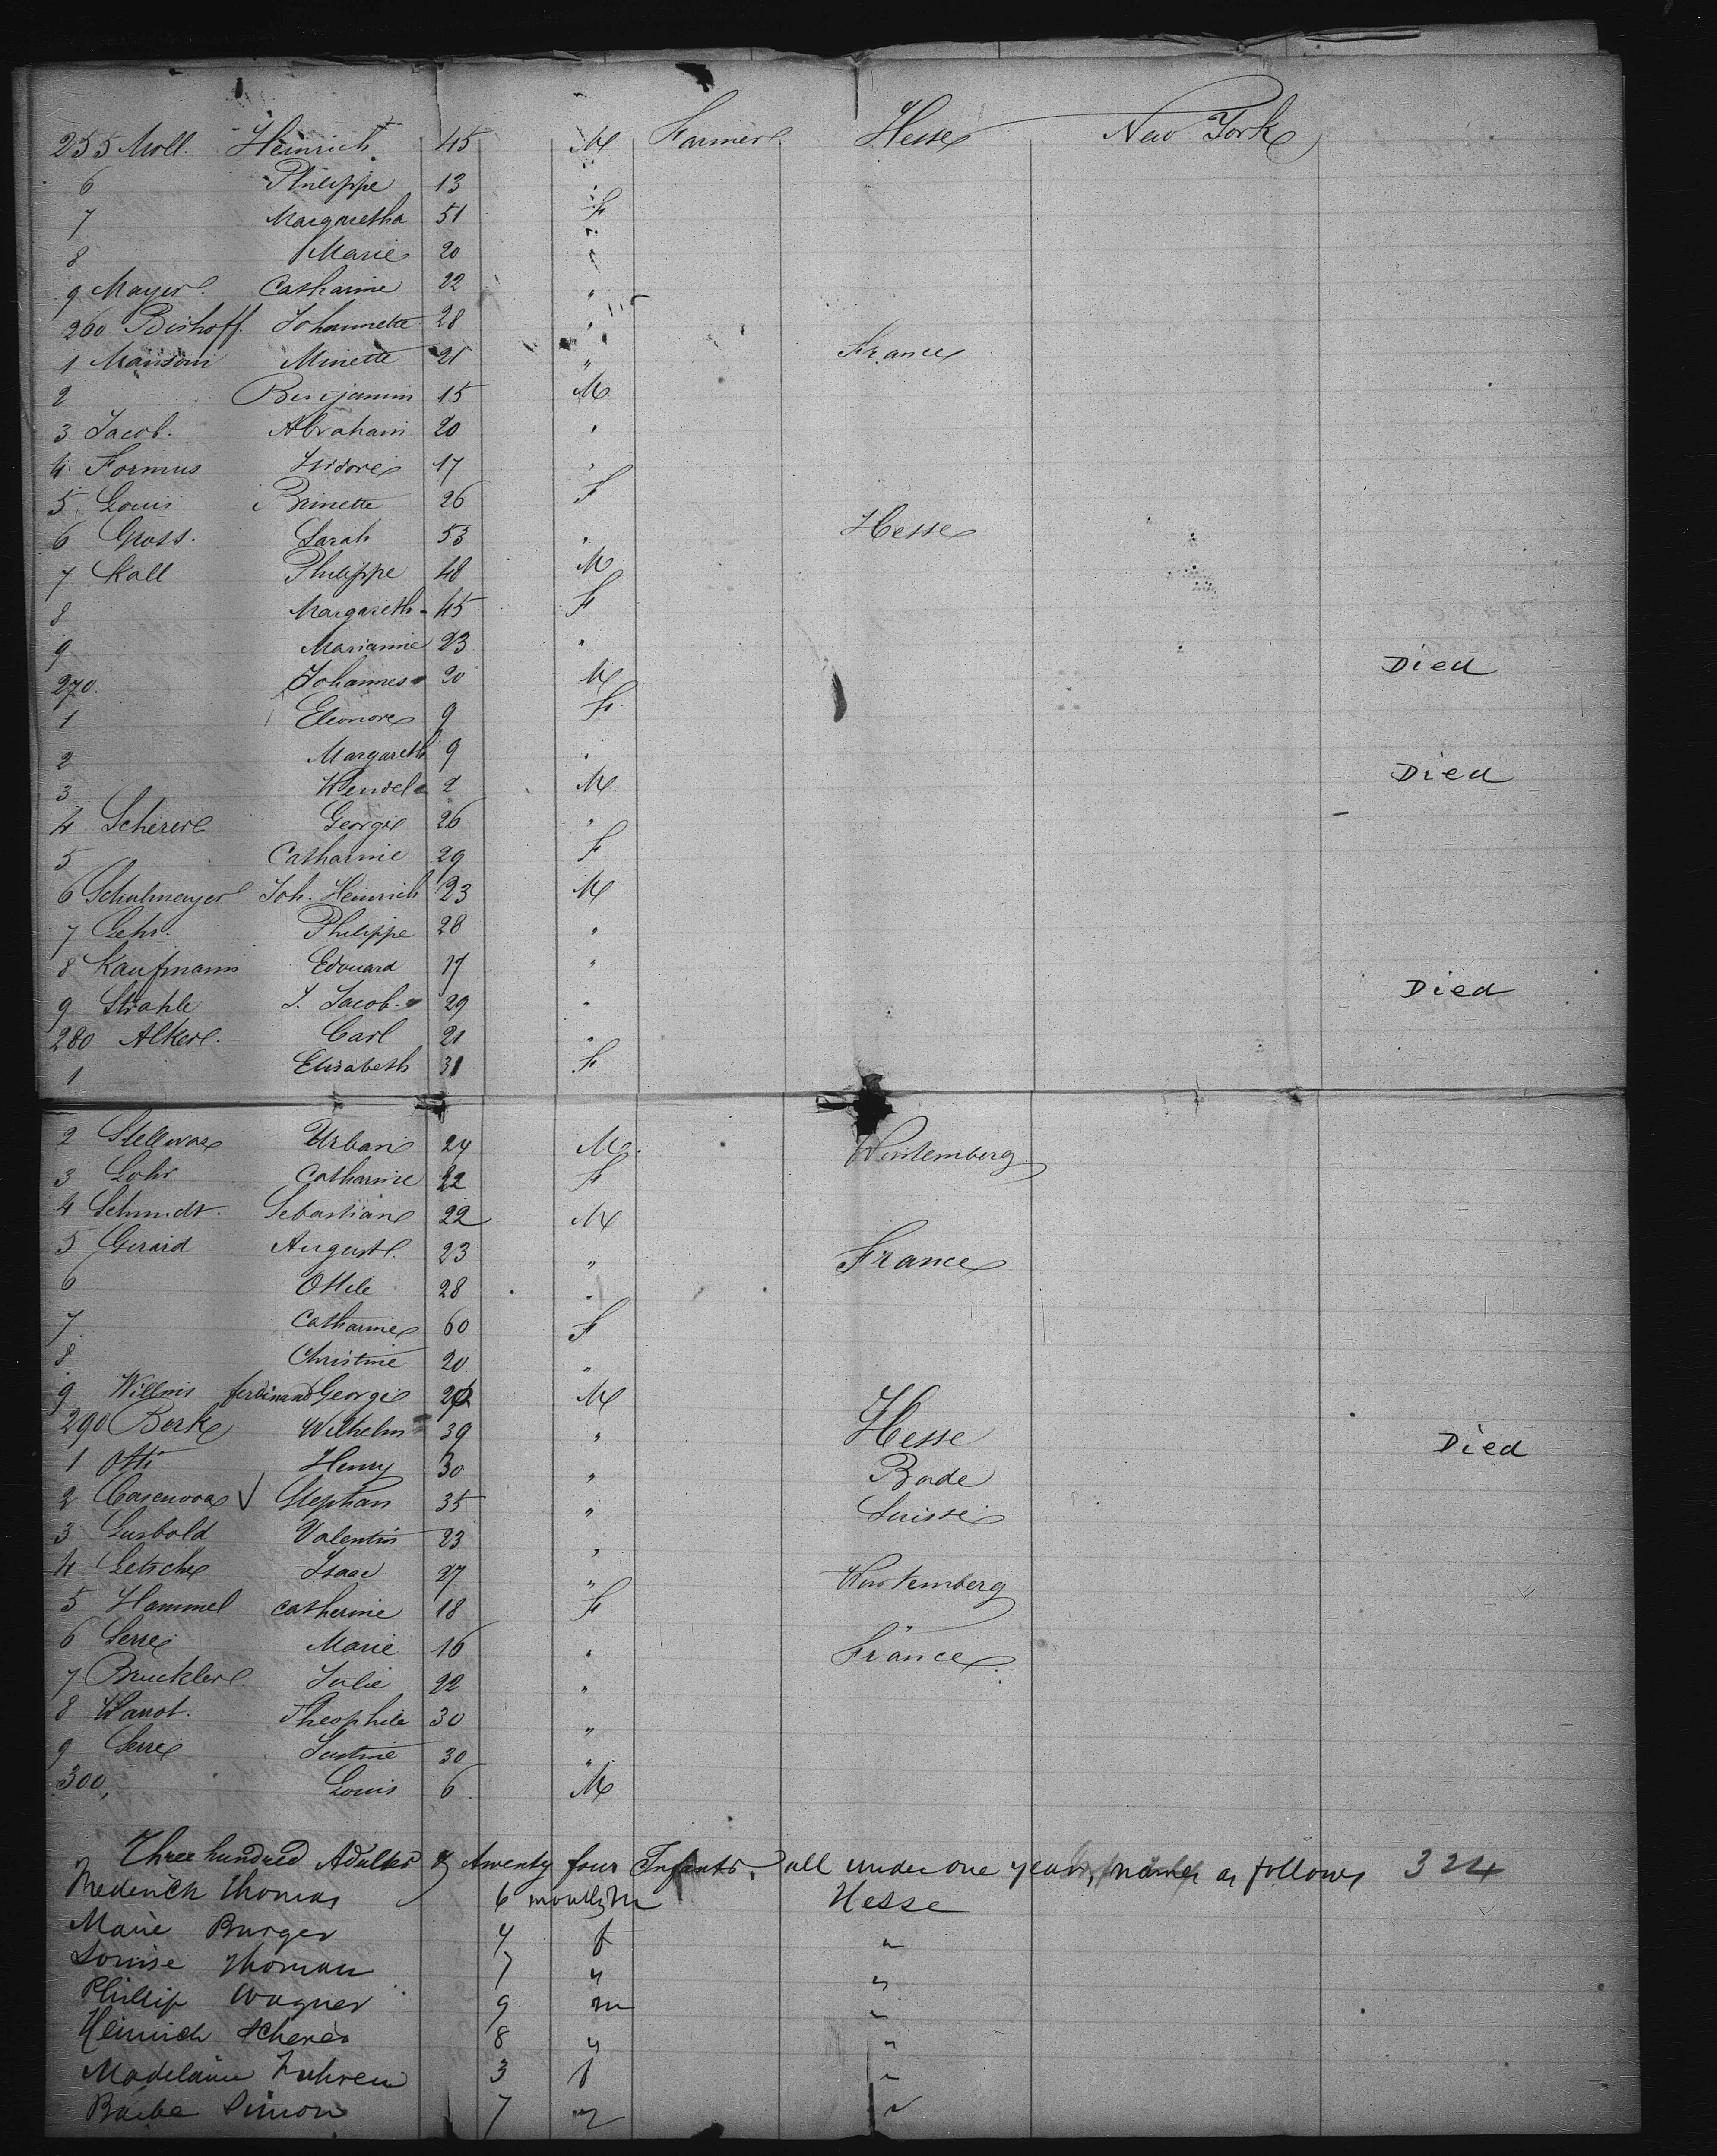 255 Moll. Heinrich 45 M Farmer Hesse New York
6 Philippe 13 "
7 Margaretha 51 F
8 Marie 20 "
9 Mayer. Catharine 22 "
260 Bishoff. Johannette 28 "
1 Mansoni Minette 21 " France
2 Benjamin 15 M
3 Jacob. Abraham 20 "
4 Formus Isidore 17 "
5 Louis Brinette 26 F
6 Gross. Sarah 53 " Hesse
7 Kall Philippe 48 M
8 Margareth 45 F
9 Marianne 23 "
270 Johannes 20 M Died
1 Eleonore 9 F
2 Margareth 9 "
3 Wendel 2 M Died
4 Scherer Georg 26 "
5 Catharine 29 F
6 Schulmeyer Joh. Heinrich 23 M
7 Gehr. Philippe 28 "
8 Kaufmann Edouard 17 "
9 Strahle J. Jacob. 29 " Died
280 Alker. Carl 21 "
1 Elisabeth 31 F
2 Urban 24 M. Wurtemberg
3 Lohr Catharine 22 F
4 Schmidt. Sebastian 22 M
5 Gerard August. 23 " France
6 Ottile 28 "
7 Catharine 60 F
8 Christine 20 "
9 Willms ferdinand Georg M
290 Berk Wilhelm 39 " Hesse Died
1 Otti Henry 30 " Bade
2 Casenova √ Stephan 35 " Suisse
3 Lusbold Valentin 23 "
4 Letsche Isaac 27 " Wurtemberg
5 Hammel Catherine 18 F "
6 Serre Marie 16 " France
7 Bruckler. Julie 22 "
8 Warrot. Theophile 30 "
9 Serre Justine 30 "
300, Louis 6 M
Three hundred Adults & twenty four Infants. all under one year, names as follows 324
Frederick Thomas 6 months m Hesse
Marie Burger 4 f "
Louise Thomas 7 " "
Phillip Wagner 9 m "
Heinrich Scherer 8 " "
Madelaine 3 f "
Barbe Simon 7 " "